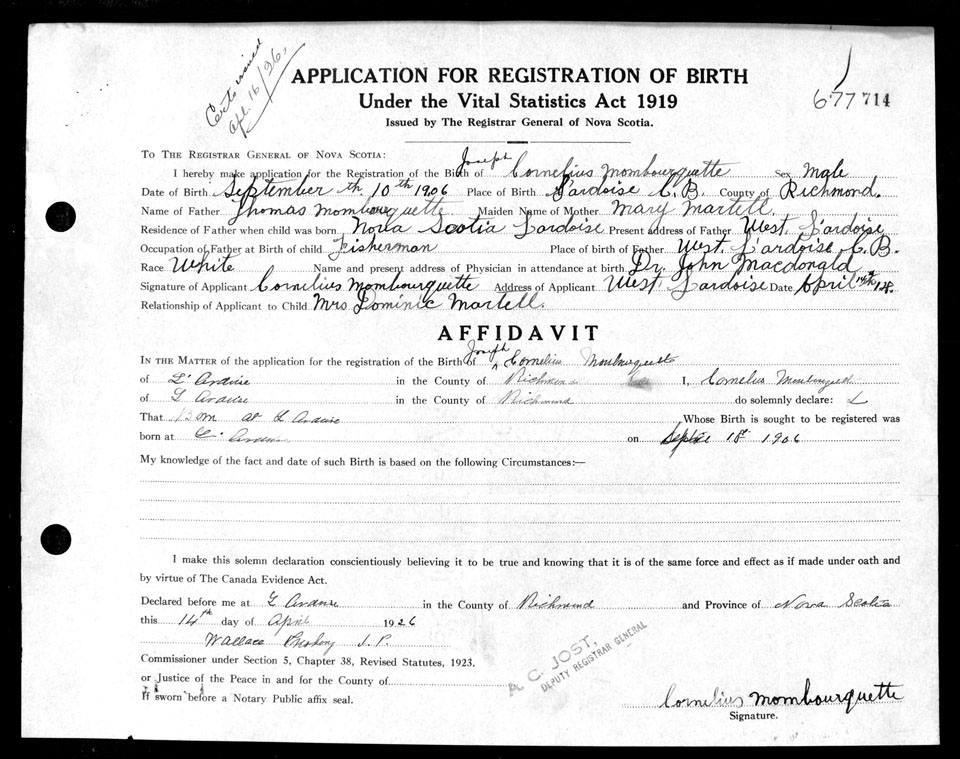 Certs issued
Apl. 16/26.
APPLICATION FOR REGISTRATION OF BIRTH
Under the Vital Statistics Act 1919
Issued by The Registrar General of Nova Scotia.
677 714
TO THE REGISTRAR GENERAL OF NOVA SCOTIA:
I hereby make application for the Registration of the Birth of Joseph Cornelius Mombourquette Sex Male
Date of Birth September th. 10th 1906 Place of Birth Lardoise C.B. County of Richmond.
Name of Father Thomas Mombourquette Maiden Name of Mother Mary Martell.
Residence of Father when child was born Nova Scotia Lardoise Present address of Father West. L'ardoise
Occupation of Father at Birth of child Fisherman Place of birth of Father West. L'ardoise C.B.
Race White Name and present address of Physician in attendance at birth Dr. John Macdonald
Signature of Applicant Cornelius Mombourquette Address of Applicant West. Lardoise Date April 14th
Relationship of Applicant to Child Mrs Dominic Martell.
AFFIDAVIT
IN THE MATTER of the application for the registration of the Birth of Joseph Cornelius Mombourquette
of L'Ardoise in the County of Richmond I, Cornelius Mombourquette
of L'Ardoise in the County of Richmond do solemnly declare:
That Born at L'Ardoise Whose Birth is sought to be registered was
born at L'Ardoise on Sept 1906
My knowledge of the fact and date of such Birth is based on the following Circumstances:—
I make this solemn declaration conscientiously believing it to be true and knowing that it is of the same force and effect as if made under oath and
by virtue of The Canada Evidence Act.
Declared before me at L'Ardoise in the County of Richmond and Province of Nova Scotia
this 14th day of April 1926
Wallace J.P.
Commissioner under Section 5, Chapter 38, Revised Statutes, 1923.
or Justice of the Peace in and for the County of
If sworn before a Notary Public affix seal.
A. C. JOST,
DEPUTY REGISTRAR GENERAL
Cornelius Mombourquette
Signature.